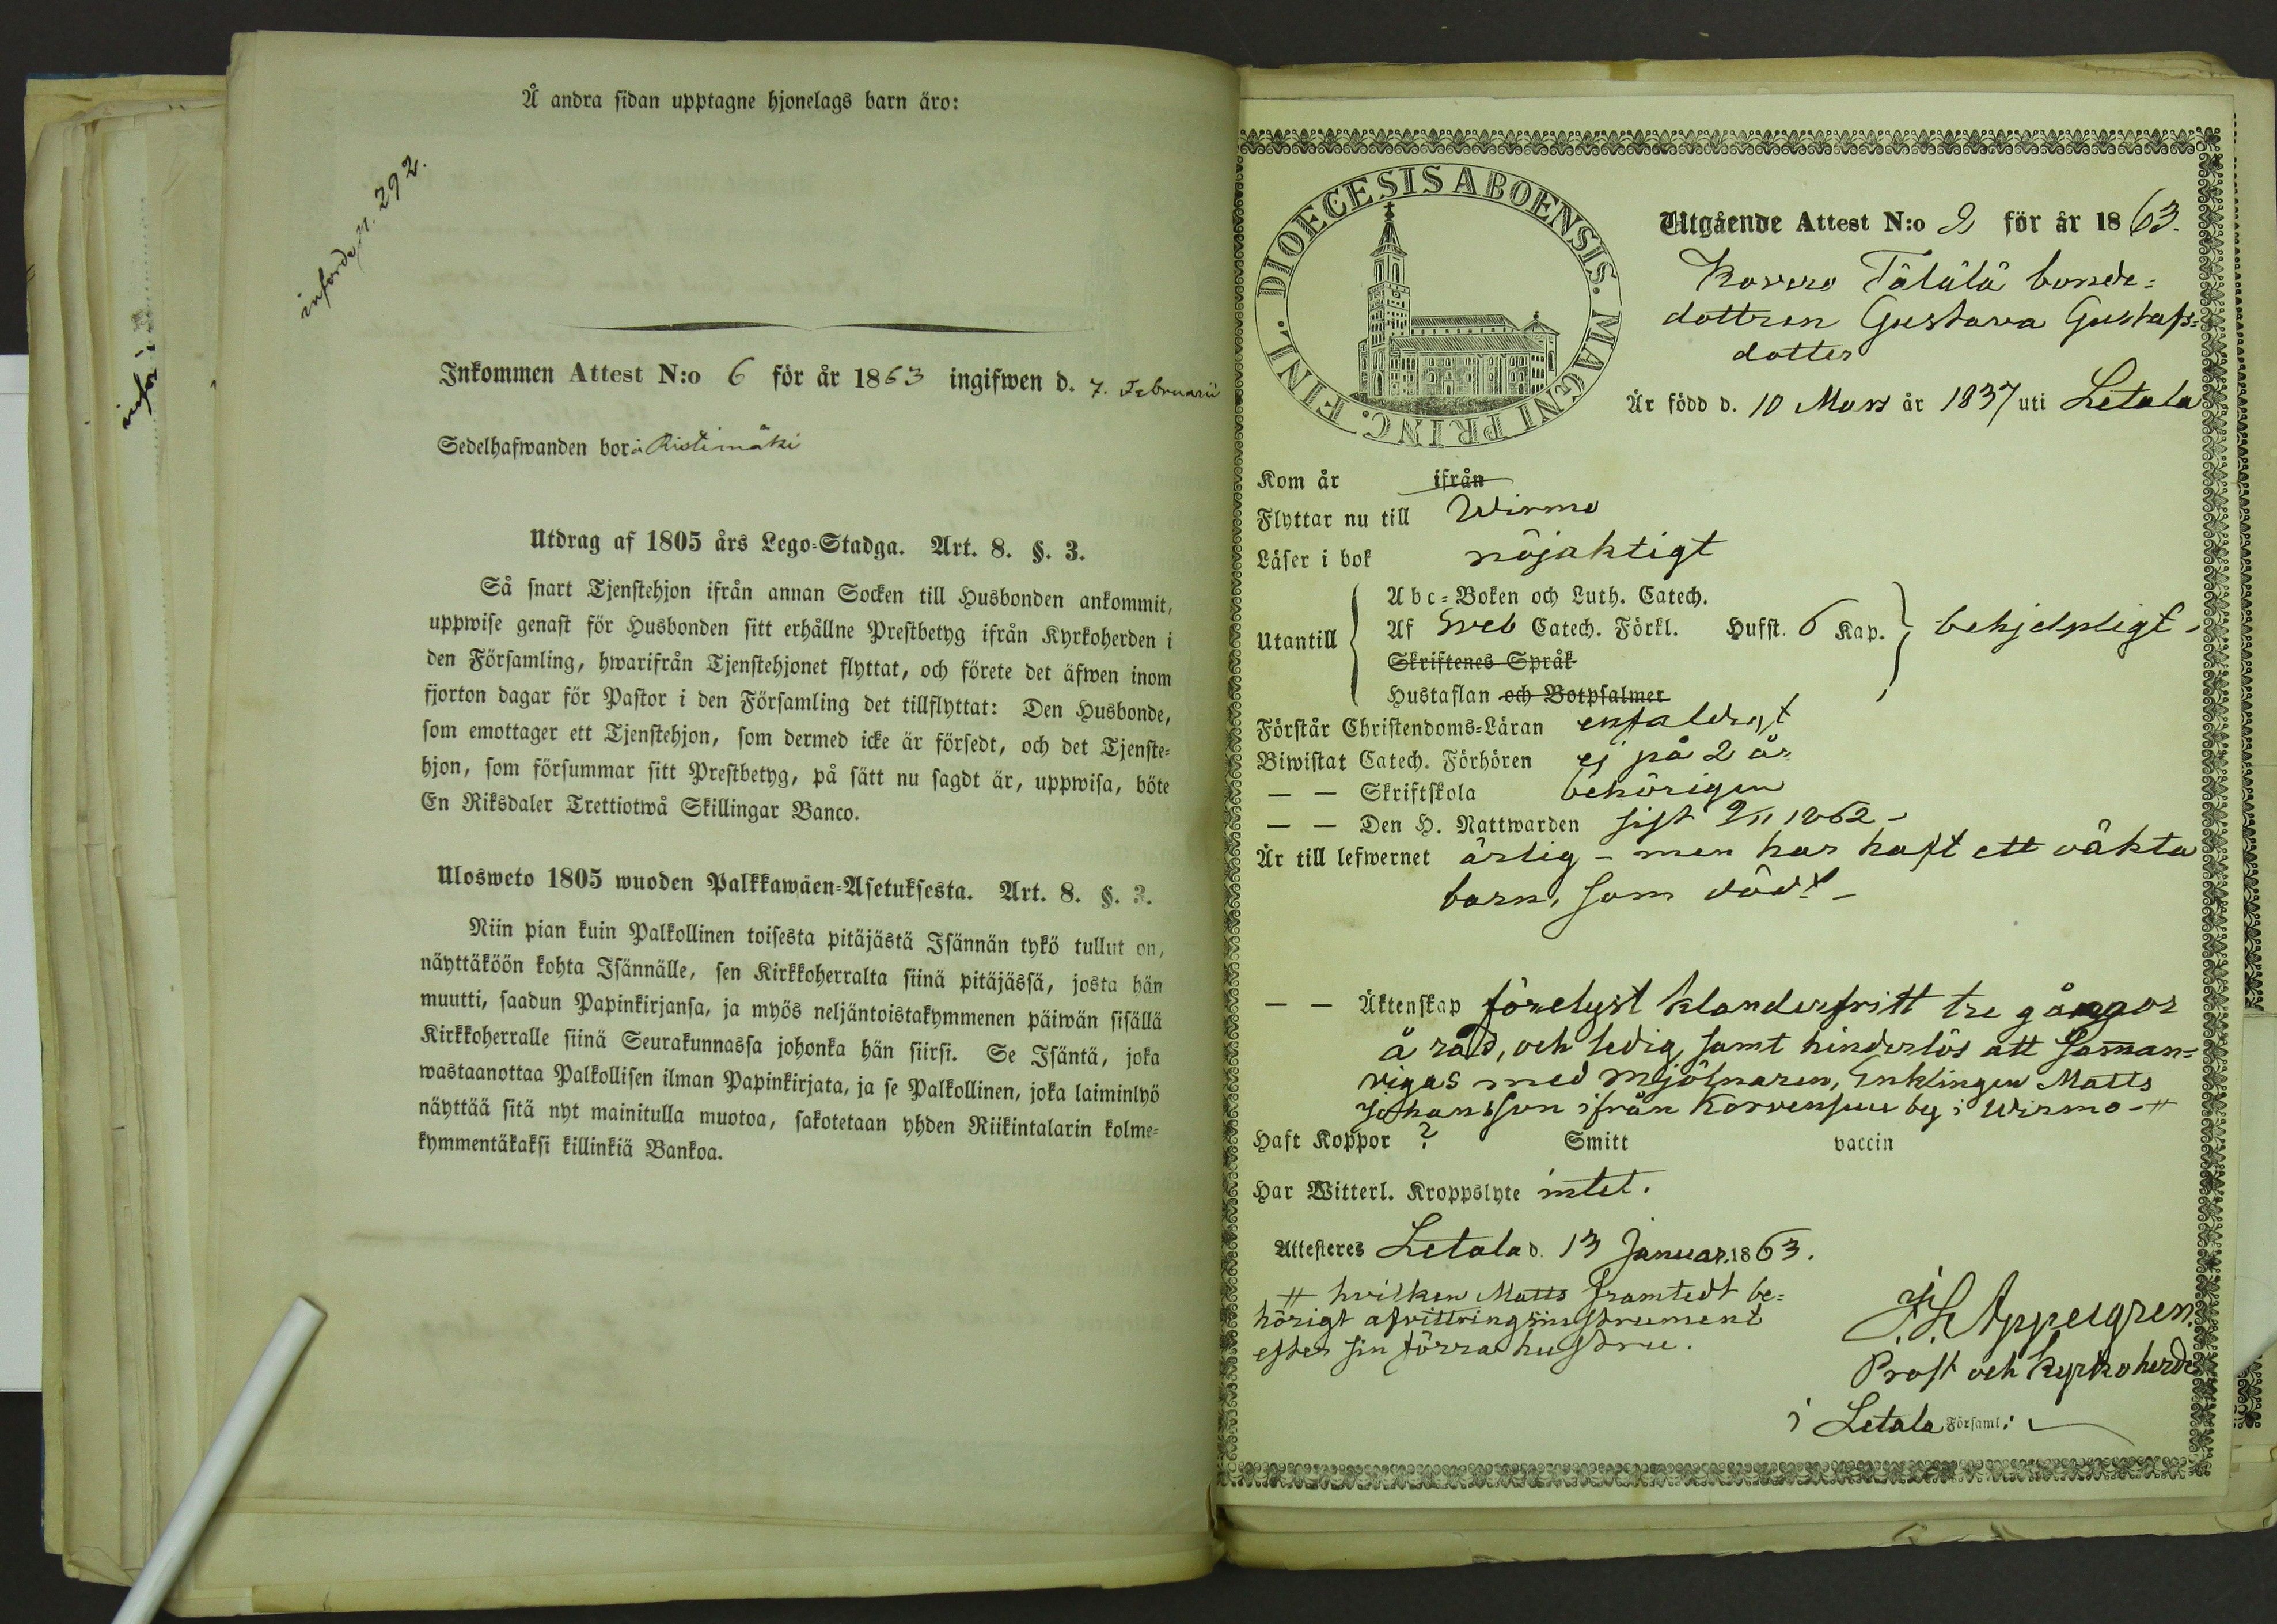 Å andra sidan upptagne hjonelags barn äro:
införd p. 292.
Inkommen Attest N:o 6 för år 1863 ingifwen d. 7. Februarii
Sedelhafwanden bor i Ristimäki
Utdrag af 1805 års Lego-Stadga. Art. 8. §. 3.
Så snart Tjenstehjon ifrån annan Socken till Husbonden ankommit,
uppwise genast för Husbonden sitt erhållne Prestbetyg ifrån Kyrkoherden i
den Församling, hwarifrån Tjenstehjonet flyttat, och förete det äfwen inom
fjorton dagar för Pastor i den Församling det tillflyttat: Den Husbonde,
som emottager ett Tjenstehjon, som dermed icke är försedt, och det Tjenste-
hjon, som försummar sitt Prestbetyg, på sätt nu sagdt är, uppwisa, böte
En Riksdaler Trettiotwå Skillingar Banco.
Ulosweto 1805 wuoden Palkkawäen-Asetuksesta. Art. 8. §. 3.
Niin pian kuin Palkollinen toisesta pitäjästä Isännän tykö tullut on,
näyttäköön kohta Isännälle, sen Kirkkoherralta siinä pitäjässä, josta hän
muutti, saadun Papinkirjansa, ja myös neljäntoistakymmenen päiwän sisällä
Kirkkoherralle siinä Seurakunnassa johonka hän siirsi. Se Isäntä, joka
wastaanottaa Palkollisen ilman Papinkirjata, ja se Palkollinen, joka laiminlyö
näyttää sitä nyt mainitulla muotoa, sakotetaan yhden Riikintalarin kolme-
kymmentäkaksi killinkiä Bankoa.
DIOECESIS ABOENSIS. MAGNI PRINC. FINL.
Utgående Attest N:o 2 för år 1863.
Kovero Tälälä bonde-
dottren Gustava Gustafs-
dotter
Är född d. 10 Mars år 1837 uti Letala
Kom år ifrån
Flyttar nu till Wirmo
Läser i bok nöjaktigt
Abc-Boken och Luth. Catech.
Utantill Af Sveb Catech. Förkl. Hufst. 6 Kap. behjelpligt -
Skriftenes Språk
Hustaflan och Botpsalmer
Förstår Christendoms-Läran enfaldigt
Biwistat Catech. Förhören ej på 2 år
— — Skriftskola behörigen
— — Den H. Nattwarden sist 9/11 1862 -
Är till lefwernet ärlig - men har haft ett oäkta
barn, som död. -
— — Äktenskap förelyst klanderfritt tre gångor
å rad, och ledig, samt hinderlös att samman-
vigas med Mjölnaren, Enklingen Matts
Johansson ifrån Korvensuu by i Wirmo - #
Haft Koppor ? Smitt vaccin
Har Witterl. Kroppslyte intet.
Attesteres Letala d. 13 Januar. 1863.
# hvilken Matts framtedt be-
hörigt afvittringsinstrument
efter sin förra hustru.
Appelgren.
Prost och Kyrkoherde
i Letala Församl: